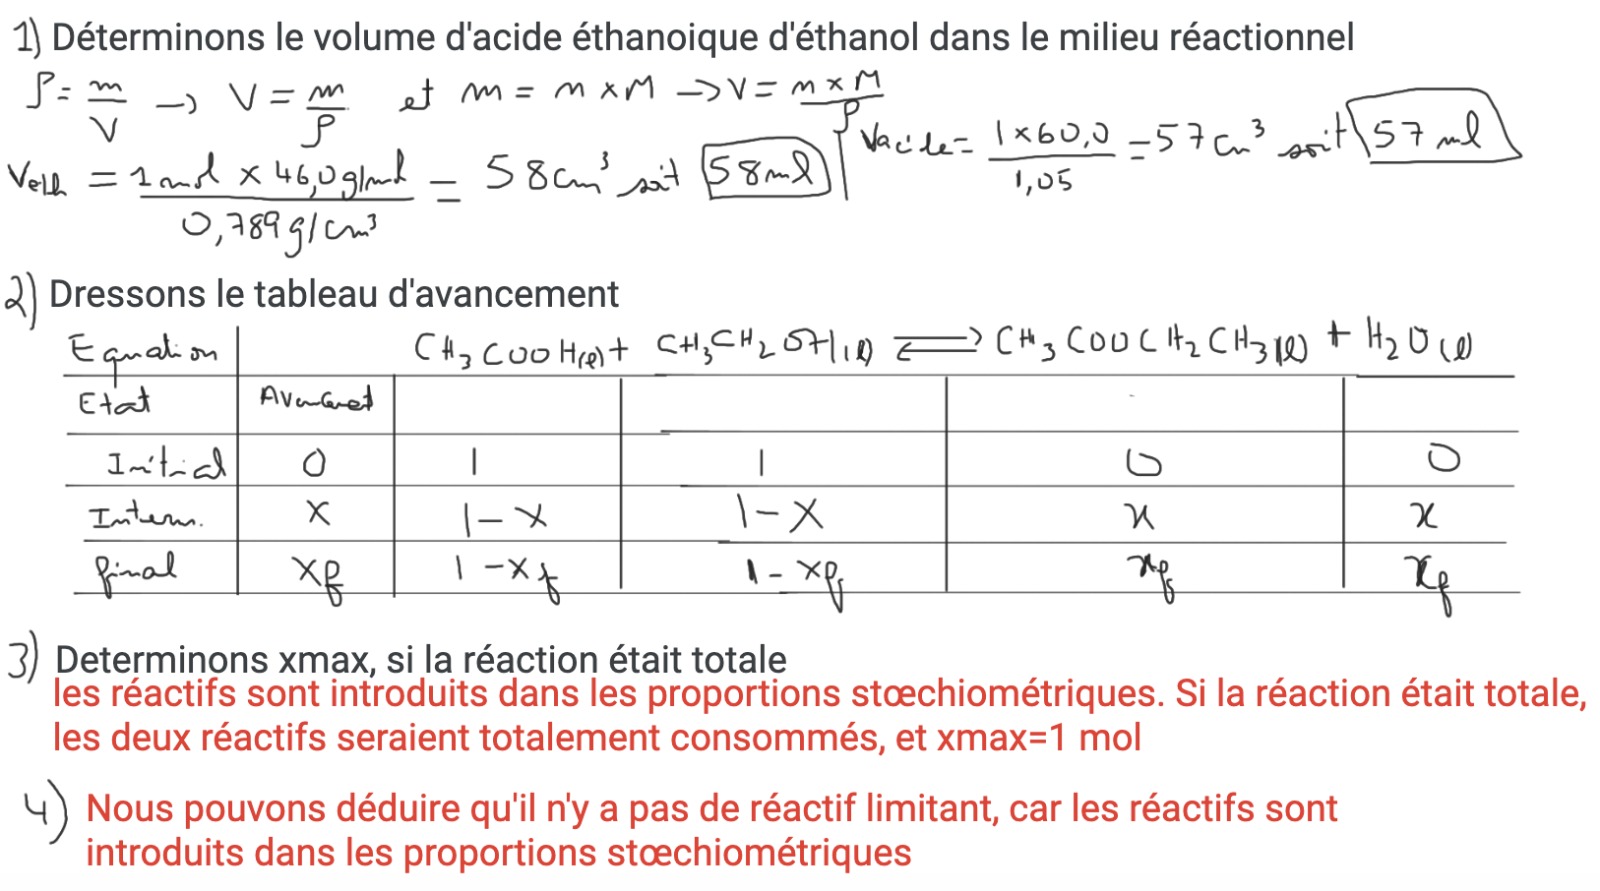 1) Déterminons le volume d'acide éthanoique d'éthanol dans le milieu réactionnel
ρ = m/V → V = m/ρ et m = n × M → V = n × M / ρ
Veth = 1 mol × 46,0 g/mol / 0,789 g/cm³ = 58 cm³ soit 58 ml
Vacide = 1 × 60,0 / 1,05 = 57 cm³ soit 57 ml
2) Dressons le tableau d'avancement
Equation CH3COOH(l) + CH3CH2OH(l) ⇌ CH3COOCH2CH3(l) + H2O(l)
Etat Avancement
Initial 0 1 1 0 0
Interm. x 1-x 1-x x x
final xf 1-xf 1-xf xf xf
3) Determinons xmax, si la réaction était totale
les réactifs sont introduits dans les proportions stœchiométriques. Si la réaction était totale,
les deux réactifs seraient totalement consommés, et xmax=1 mol
4) Nous pouvons déduire qu'il n'y a pas de réactif limitant, car les réactifs sont
introduits dans les proportions stœchiométriques